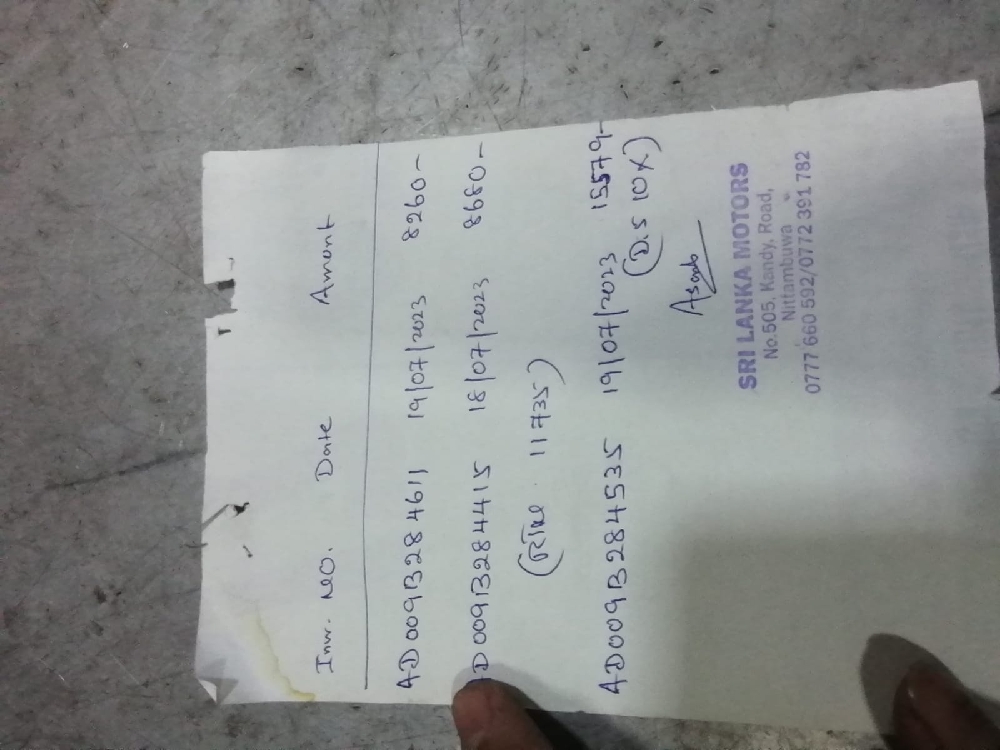 Inv. NO. Date Amont
AD009B284611 19/07/2023 8260-
AD009B284415 18/07/2023 8680-
( 11735)
AD009B284535 19/07/2023 15579-
(D.S 10%)
SRI LANKA MOTORS
No.505, Kandy, Road,
Nittambuwa
0777 660 592/0772 391 782